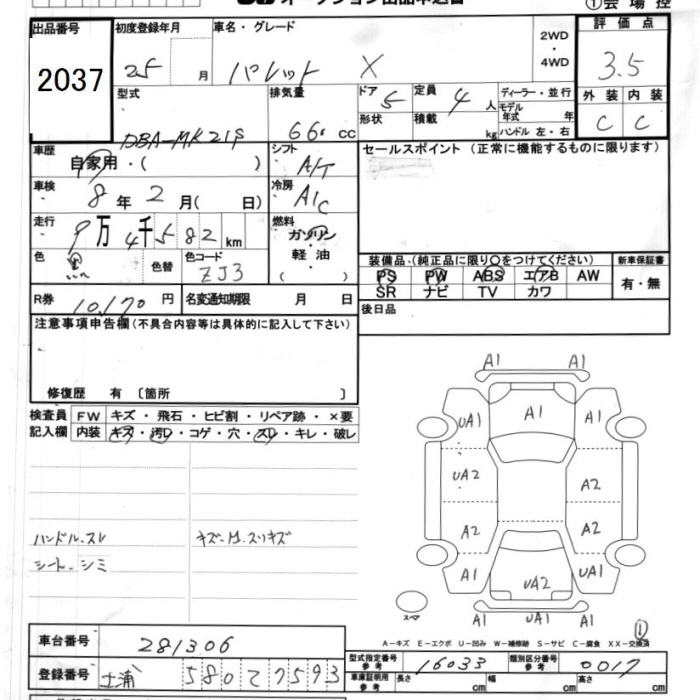 オークション出品申込書
①会場控
出品番号
2037
初度登録年月
25 月
車名・グレード
パレット X
2WD
・
4WD
評価点
3.5
外装 内装
C C
型式
DBA-MK21S
排気量
660 cc
ドア 5
形状
定員 4 人
積載 kg
ディーラー・並行
モデル年式 年
ハンドル 左・右
車歴
自家用・( )
シフト
A/T
車検
8 年 2 月( 日)
冷房
A/C
走行
9万 4千 5 8 2 km
燃料
ガソリン
・
軽油
( )
色
黒
色替
色コード
ZJ3
R券
10,170 円
名変通知期限 月 日
セールスポイント (正常に機能するものに限ります)
装備品・(純正品に限り○をつけてください)
PS PW ABS エアB AW
SR ナビ TV カワ
新車保証書
有・無
後日品
注意事項申告欄(不具合内容等は具体的に記入して下さい)
修復歴 有 〔箇所 〕
検査員
記入欄
FW キズ・飛石・ヒビ割・リペア跡・×要
内装 キズ・汚レ・コゲ・穴・スレ・キレ・破レ
ハンドル.スレ
シート.シミ
A1 A1
UA1 A1 A1
UA2 A2
A2 A2
A1 UA2 UA1
A1 UA1 A1
スペア
①
A-キズ E-エクボ U-凹み W-補修跡 S-サビ C-腐食 XX-交換済
車台番号
281306
登録番号
土浦 580 さ 7593
型式指定番号
参考
16033
類別区分番号
参考
0017
車庫証明用
参考
長さ cm 幅 cm 高さ cm